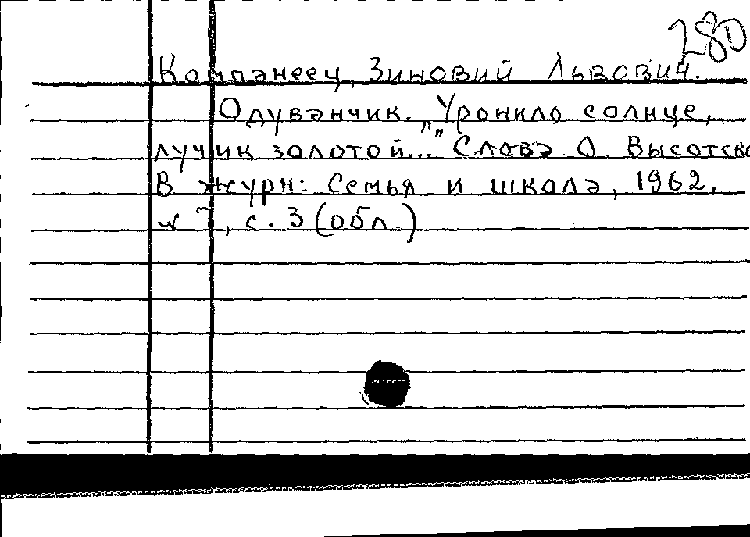 280
Компанеец, Зиновий Львович.
Одуванчик. „Уронило солнце,
лучик золотой..." Слова О. Высотско
В журн: Семья и школа, 1962,
№ 7, с. 3 (обл.)